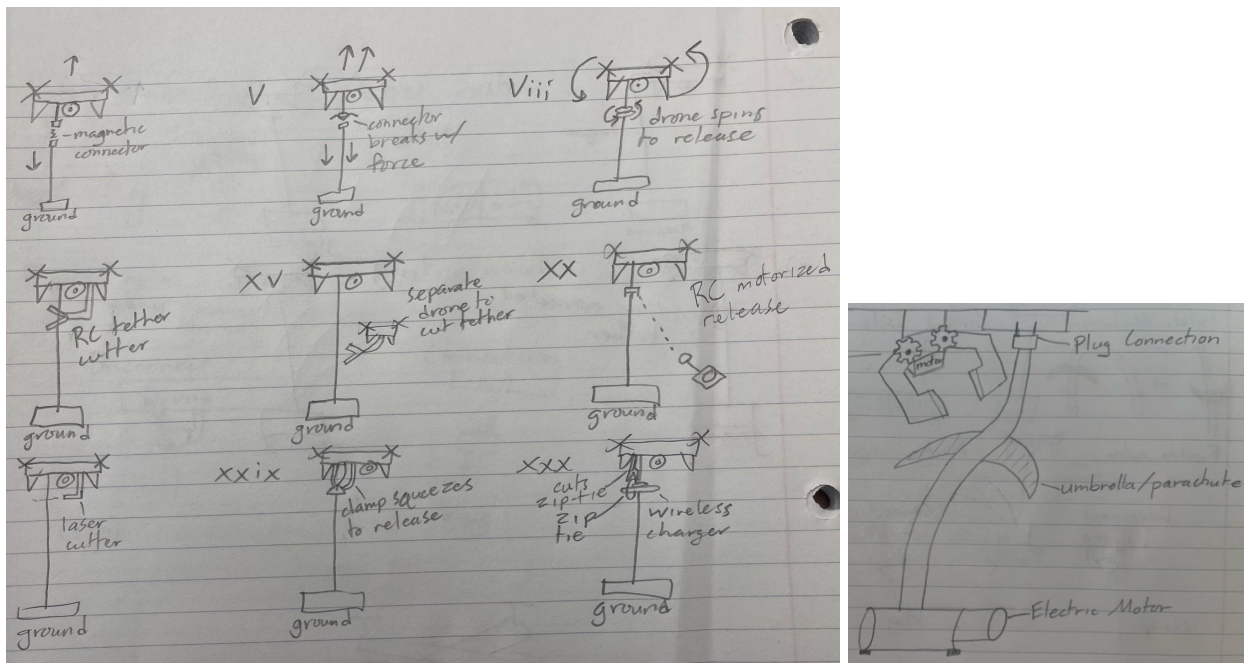 magnetic
connector
ground
V
connector
breaks w/
force
ground
Viii
drone spins
to release
ground
RC tether
cutter
ground
XV
separate
drone to
cut tether
ground
XX
RC motorized
release
ground
laser
cutter
ground
xxix
clamp squeezes
to release
ground
XXX
cuts
zip-tie
zip
tie
wireless
charger
ground
motor
Plug Connection
umbrella/parachute
Electric Motor